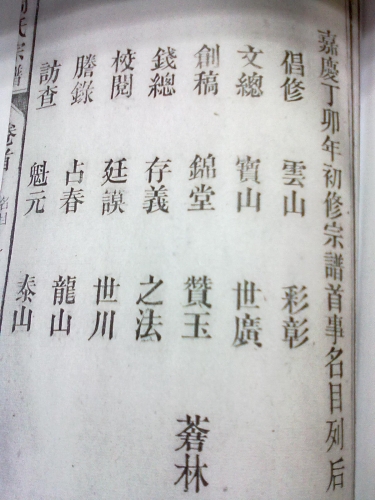 嘉慶丁卯年初修宗譜首事名目列后
倡修 雲山 彩彰
文總 寶山 世廣
創稿 錦堂 贊玉 蒼林
錢總 存義 之法
校閱 廷謨 世川
謄錄 占春 龍山
訪查 魁元 泰山
氏宗譜 卷首 名目